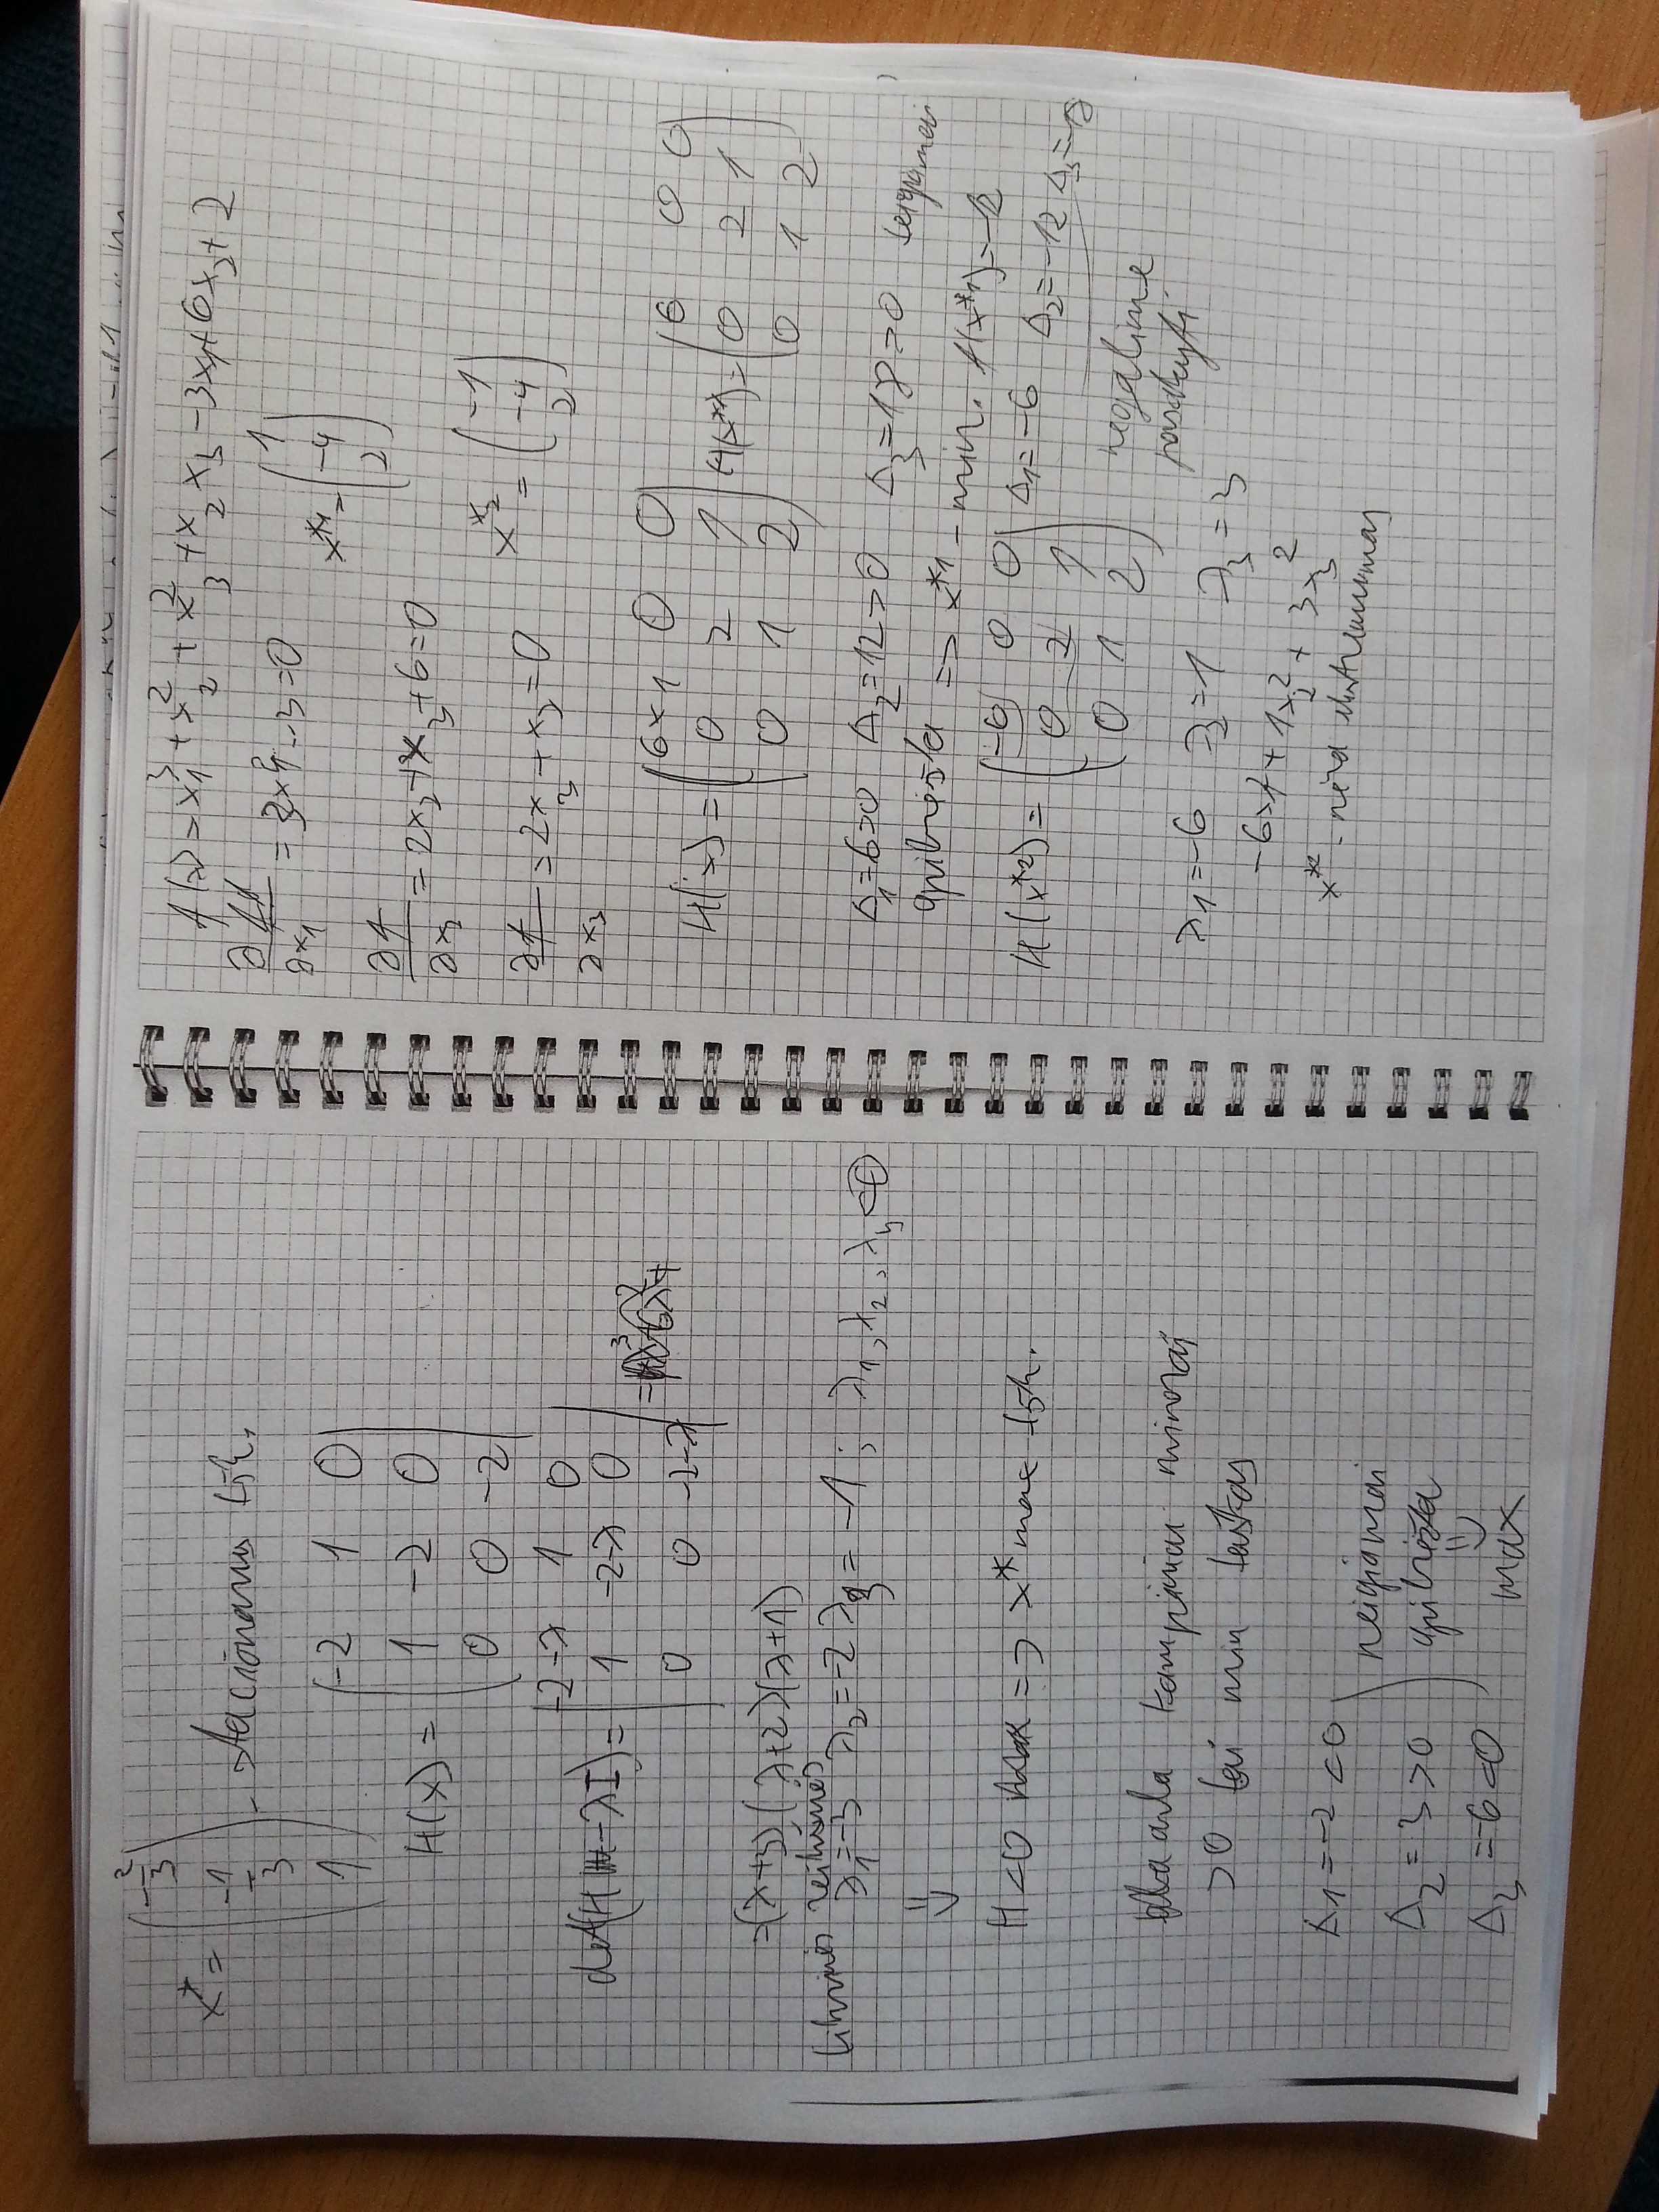 x* = (-2/3, -1/3, 1) - stacionarus tšk.
H(x) = (-2 1 0
1 -2 0
0 0 -2)
det(H - λI) = |-2-λ 1 0
1 -2-λ 0
0 0 -2-λ| =
=(λ+3)(λ+2)(λ+1)
tikrinės reikšmės
λ1=-3 λ2=-2 λ3=-1; λ1, λ2, λ3 <0
⇓
H<0 => x* max tšk.
kampiniai minorai
>0 tai min taškas
Δ1=-2<0
Δ2=3>0
Δ3=-6<0
neigiamai
apibrėžta
⇓
max
f(x)=x1^3+x2^2+x3^2+x2x3-3x1+6x2+2
∂f/∂x1=3x1^2-3=0
x*1=(1, -4, 2)
∂f/∂x2=2x2+x3+6=0
x*2=(-1, -4, 2)
∂f/∂x3=2x3+x2=0
H(x)=(6x1 0 0
0 2 1
0 1 2)
H(x*1)=(6 0 0
0 2 1
0 1 2)
Δ1=6>0 Δ2=12>0 Δ3=18>0 teigiamai
apibrėžta => x*1 - min. f(x*1)=-12
H(x*2)=(-6 0 0
0 2 1
0 1 2)
Δ1=-6 Δ2=-12 Δ3=-18
negalime
pasakyti
λ1=-6 λ2=1 λ3=3
-6x1^2+1x2^2+3x3^2
x*2 - nėra ekstremumas